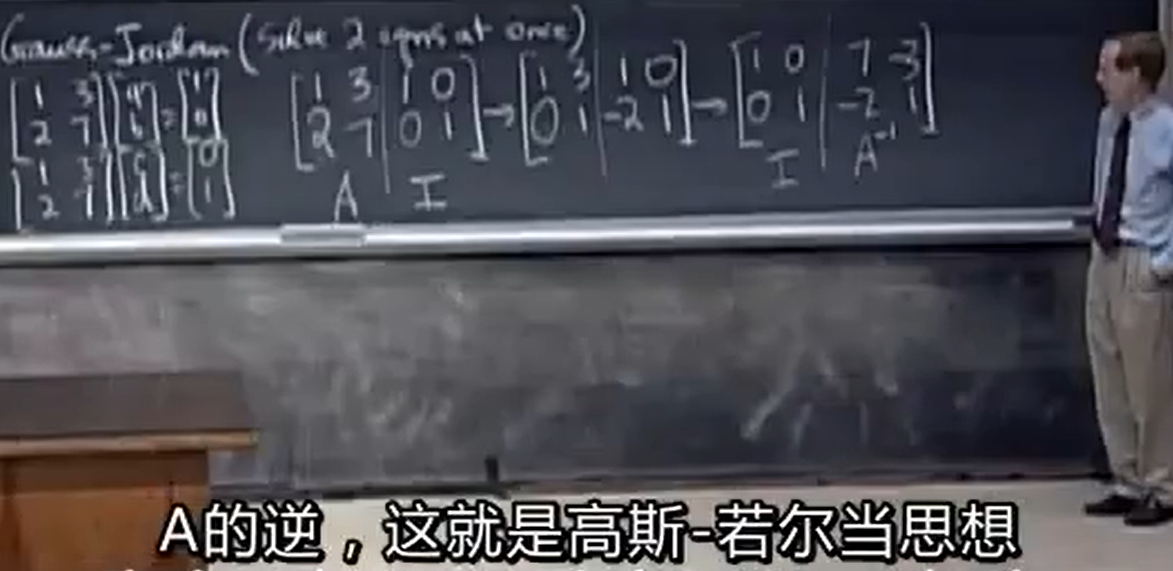 Gauss-Jordan (Solve 2 eqns at once)
[1 3; 2 7][a; b]=[1; 0]
[1 3; 2 7][c; d]=[0; 1]
[1 3 | 1 0; 2 7 | 0 1]→[1 3 | 1 0; 0 1 | -2 1]→[1 0 | 7 -3; 0 1 | -2 1]
A I I A⁻¹
A的逆，这就是高斯-若尔当思想